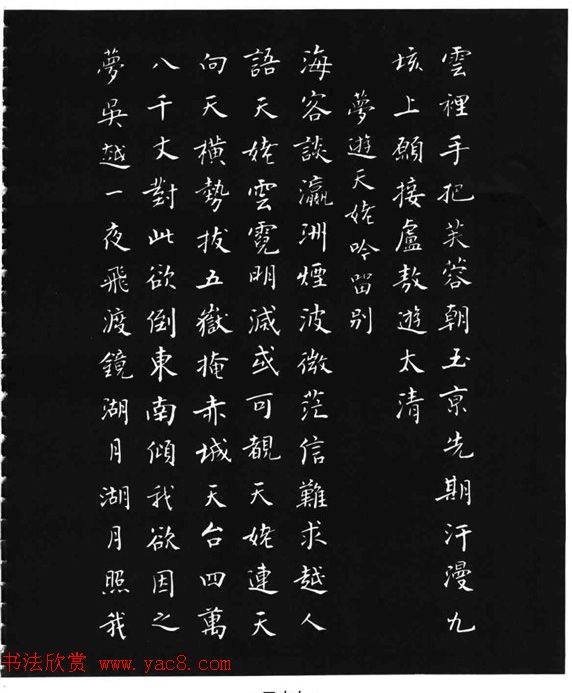 雲裡手把芙蓉朝玉京先期汗漫九
垓上願接盧敖遊太清
夢遊天姥吟留别
海客談瀛洲煙波微茫信難求越人
語天姥雲霓明滅或可覩天姥連天
向天橫勢拔五嶽掩赤城天台四萬
八千丈對此欲倒東南傾我欲因之
夢吳越一夜飛渡鏡湖月湖月照我
书法欣赏 www.yac8.com